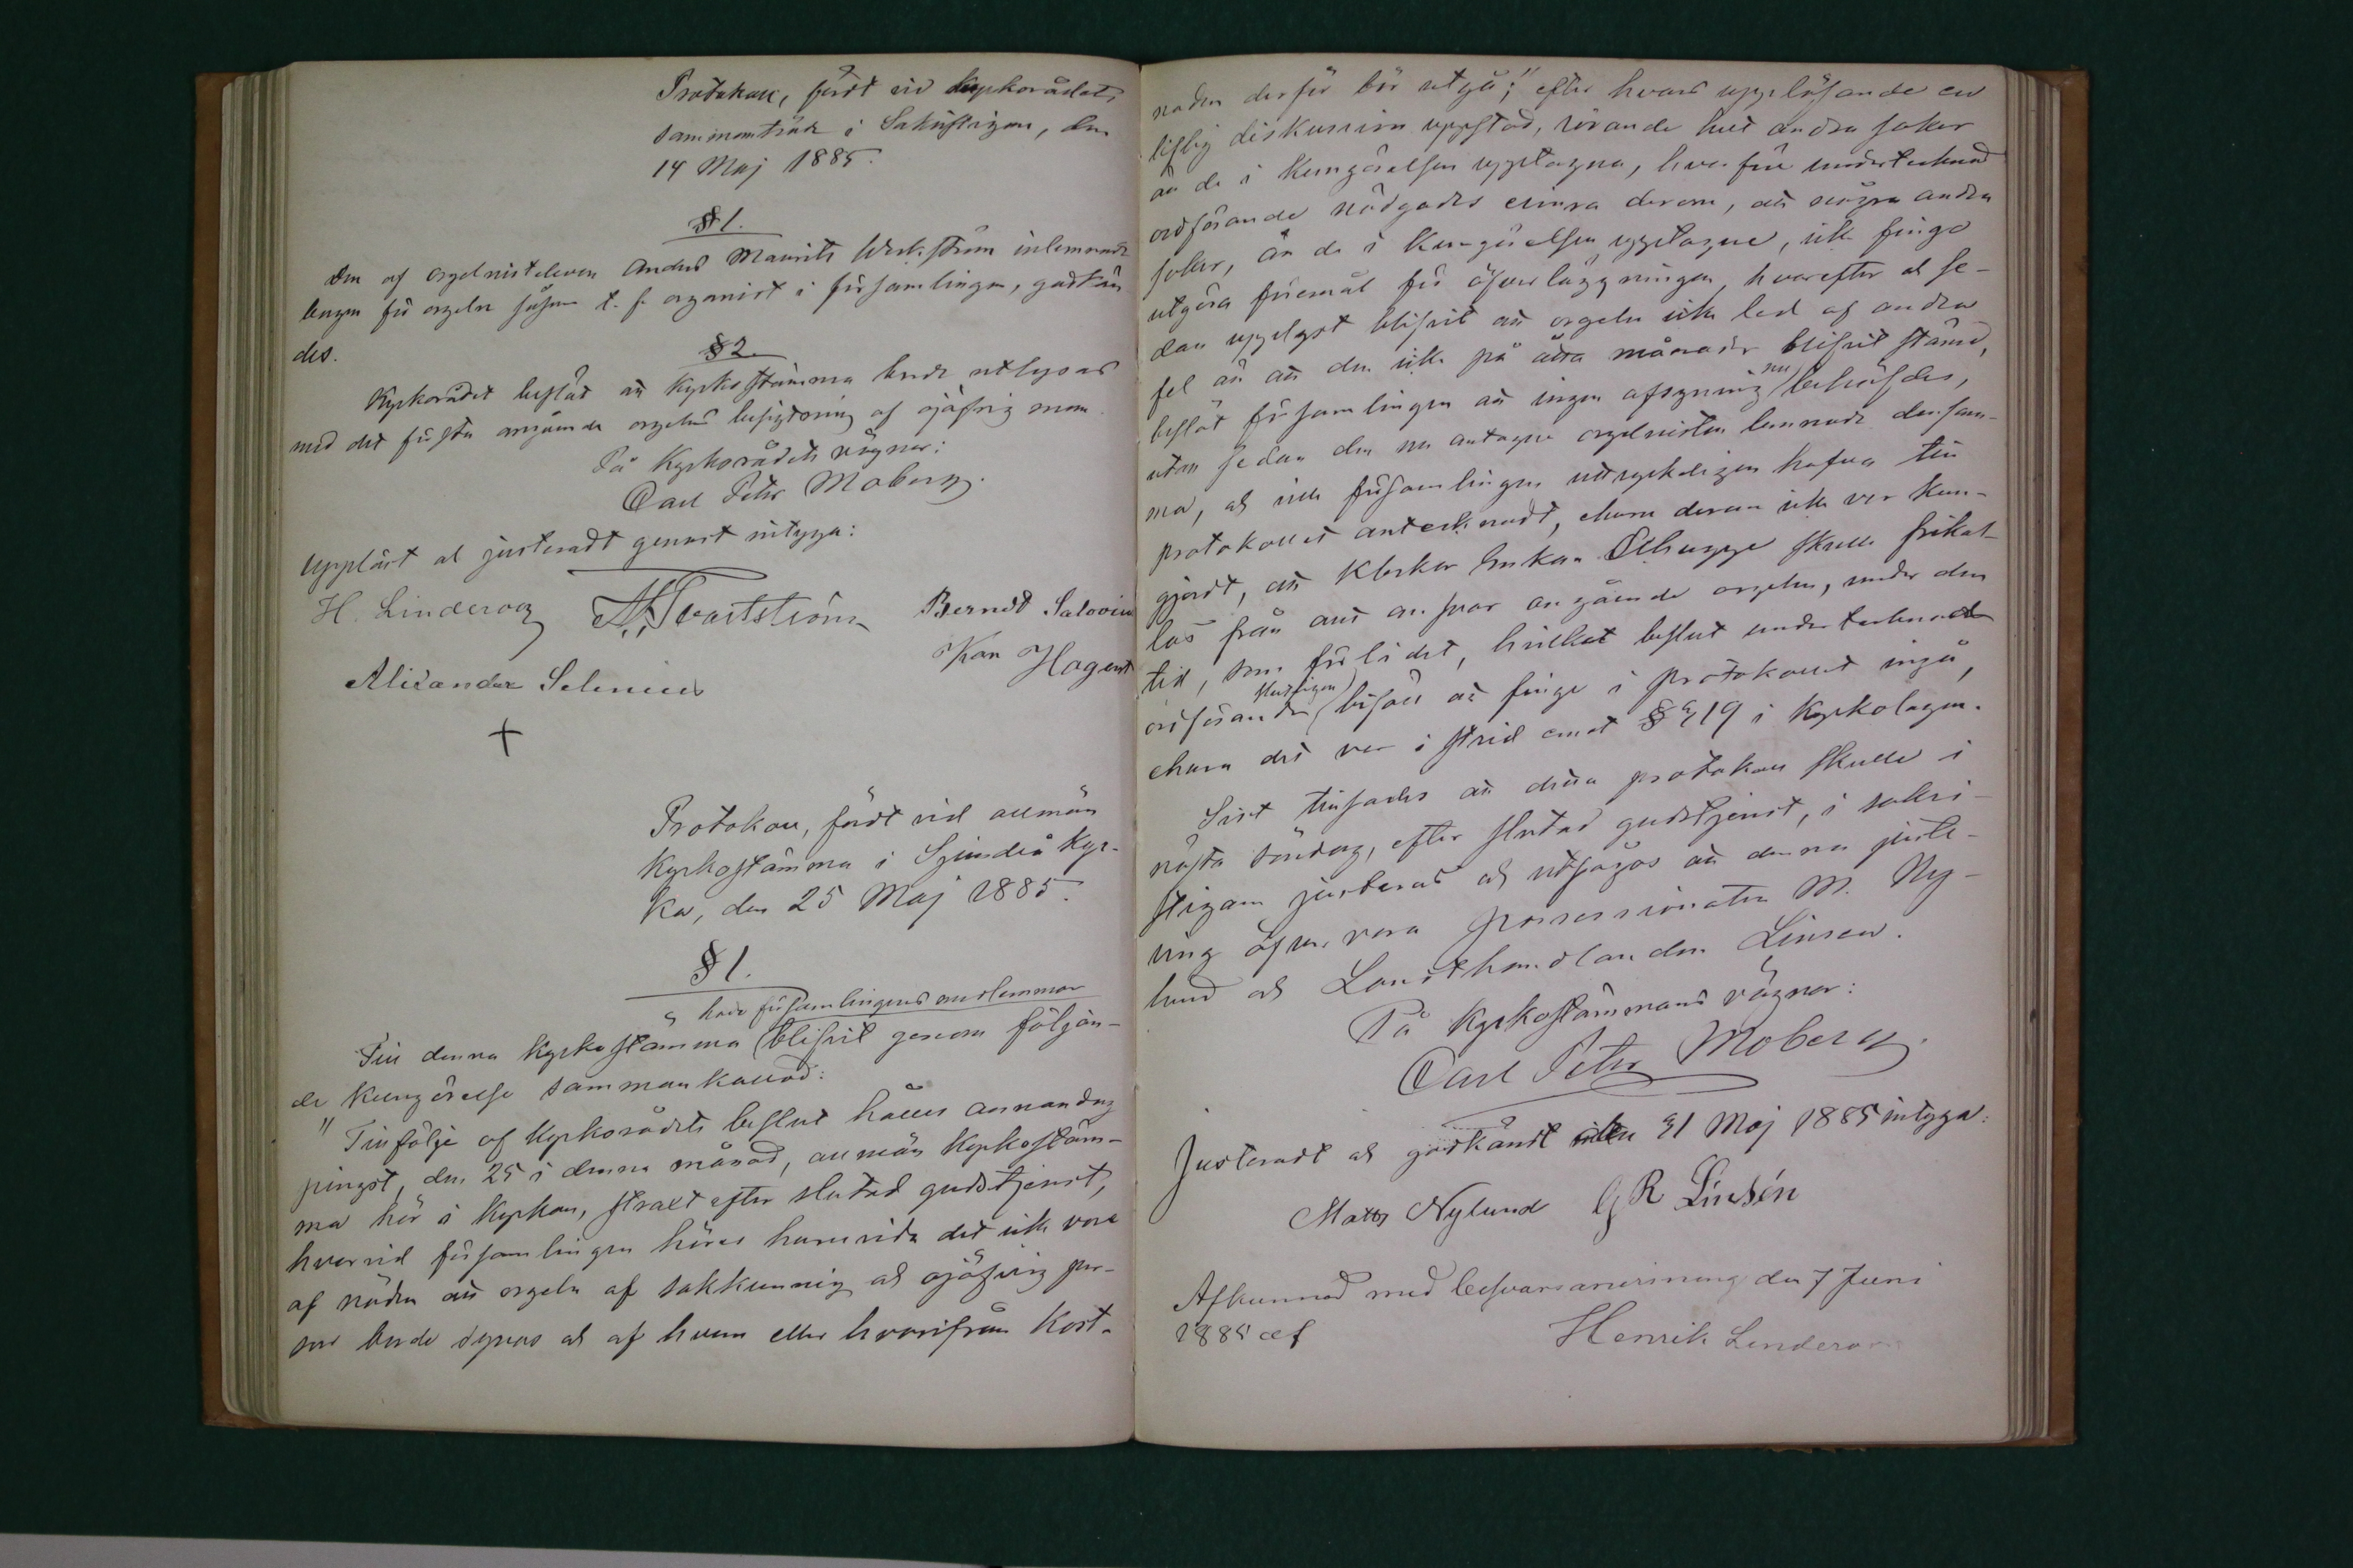 Protokoll, fördt vid kyrkorådets
sammanträde i Sakristigan, den
14 Maj 1885.
§ 1.
Den af orgelnisteleven Anders Maurits Werkström inlemnade
borgen för orgeln såsom t. f. organist i församlingen, godkän
des.
§ 2.
Kyrkorådet beslöt att Kyrkostämma borde utlysas
med det första angående orgelns besigtning af ojäfvig man.
På Kyrkorådets vägnar:
Carl Peter Moberg.
Uppläst och justeradt genast intyga:
H. Linderoos Berndt Salovius
Karl Hagert
Alexander Selenius
+
Protokoll, fördt vid allmän
Kyrkostämma i Sjundeå Kyr-
ka, den 25 Maj 1885.
§ 1.
hade församlingens medlemmar
Till denna Kyrkostämma blifvit genom följan-
de Kungörelse sammankallad:
" Tillfölje af Kyrkorådets beslut hålles annandag
pingst, den 25 i denna månad, allmän Kyrkostäm-
ma här i Kyrkan, straxt efter slutad gudstjenst,
hvarvid församlingen höres huruvida det icke vore
af nöden att orgeln af sakkunnig och ojäfvig per-
son borde synas och af hvem eller hvarifrån kost-
naden derför bör utgå;" efter hvars uppläsande en
liflig diskussion uppstod, rörande helt andra saker
än de i Kungörelsen upptagna, hvarför undertecknad
ordförande nödgades erinra derom, att några andra
saker, än de i Kungörelsen upptagne, icke finge
utgöra föremål för öfverläggningen, hvarefter och se-
dan upplyst blifvit att orgeln icke led af andra
fel än att den icke på åtta månader blifvit stämd,
beslöt församlingen att ingen afsyning nu behöfdes,
utan sedan den nu antagne orgelnisten lemnade densam-
ma, och ville församlingen uttryckeligen hafva till
protokollet antecknadt, ehuru derom icke var kun-
gjordt, att Klockar Enkan Elhugge skulle frikal-
las från allt ansvar angående orgeln, under den
tid, som förlidet, hvilket beslut undertecknad
ordförande slutligen biföll att finge i protokollet ingå,
ehuru det var i strid emot § 19 i Kyrkolagen.
Sist tillsades att detta protokoll skulle i
nästa söndag, efter slutad gudstjenst, i sakri-
stigan justeras och utsågos att denna juste-
ring öfvervara possessionaten M. Ny-
lund och Landthandlanden Linsen.
På Kyrkostämmans vägnar:
Carl Peter Moberg.
Justeradt och godkändt den 31 Maj 1885 intyga:
Matts Nylund G R Linsén
Afkunnad med besvärsanvisning den 7 Juni
1885 af Henrik Linderoos